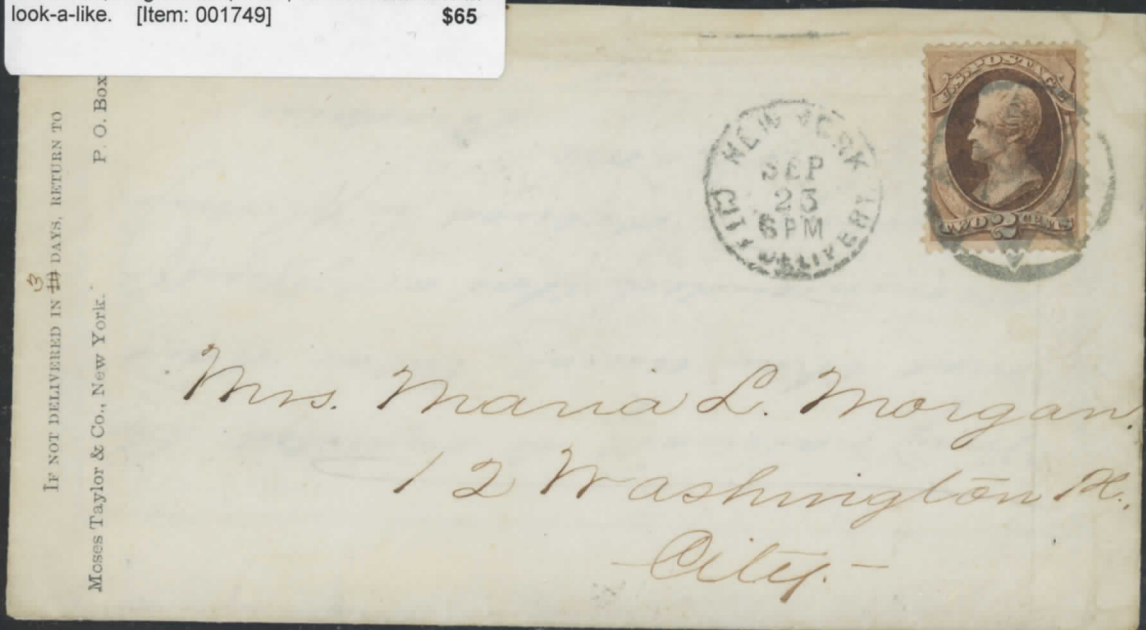 look-a-like. [Item: 001749] $65
IF NOT DELIVERED IN 10 3 DAYS, RETURN TO
Moses Taylor & Co., New York. P. O. Box
NEW YORK
SEP
23
6PM
CITY DELIVERY
U.S. POSTAGE
TWO 2 CENTS
Mrs. Maria L. Morgan.
12 Washington Pl.,
City.